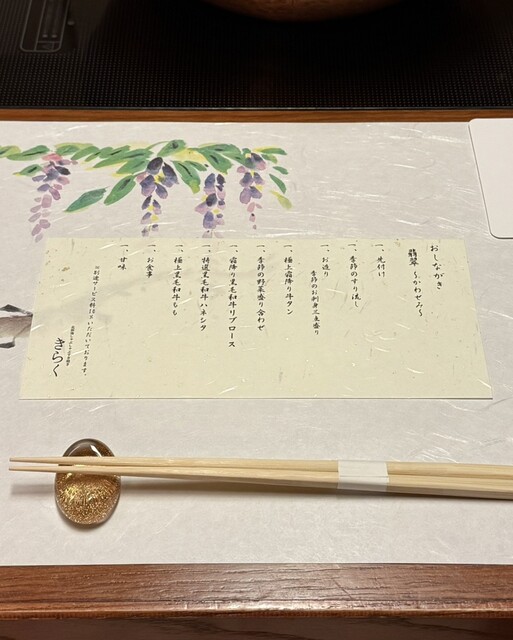 おしながき
翡翠 〜かわせみ〜
一、先付け
一、季節のすり流し
一、お造り
季節のお刺身三点盛り
一、極上霜降り牛タン
一、季節の野菜盛り合わせ
一、霜降り黒毛和牛リブロース
一、特選黒毛和牛ハネシタ
一、極上黒毛和牛もも
一、お食事
一、甘味
※別途サービス料10%いただいております。
きらく